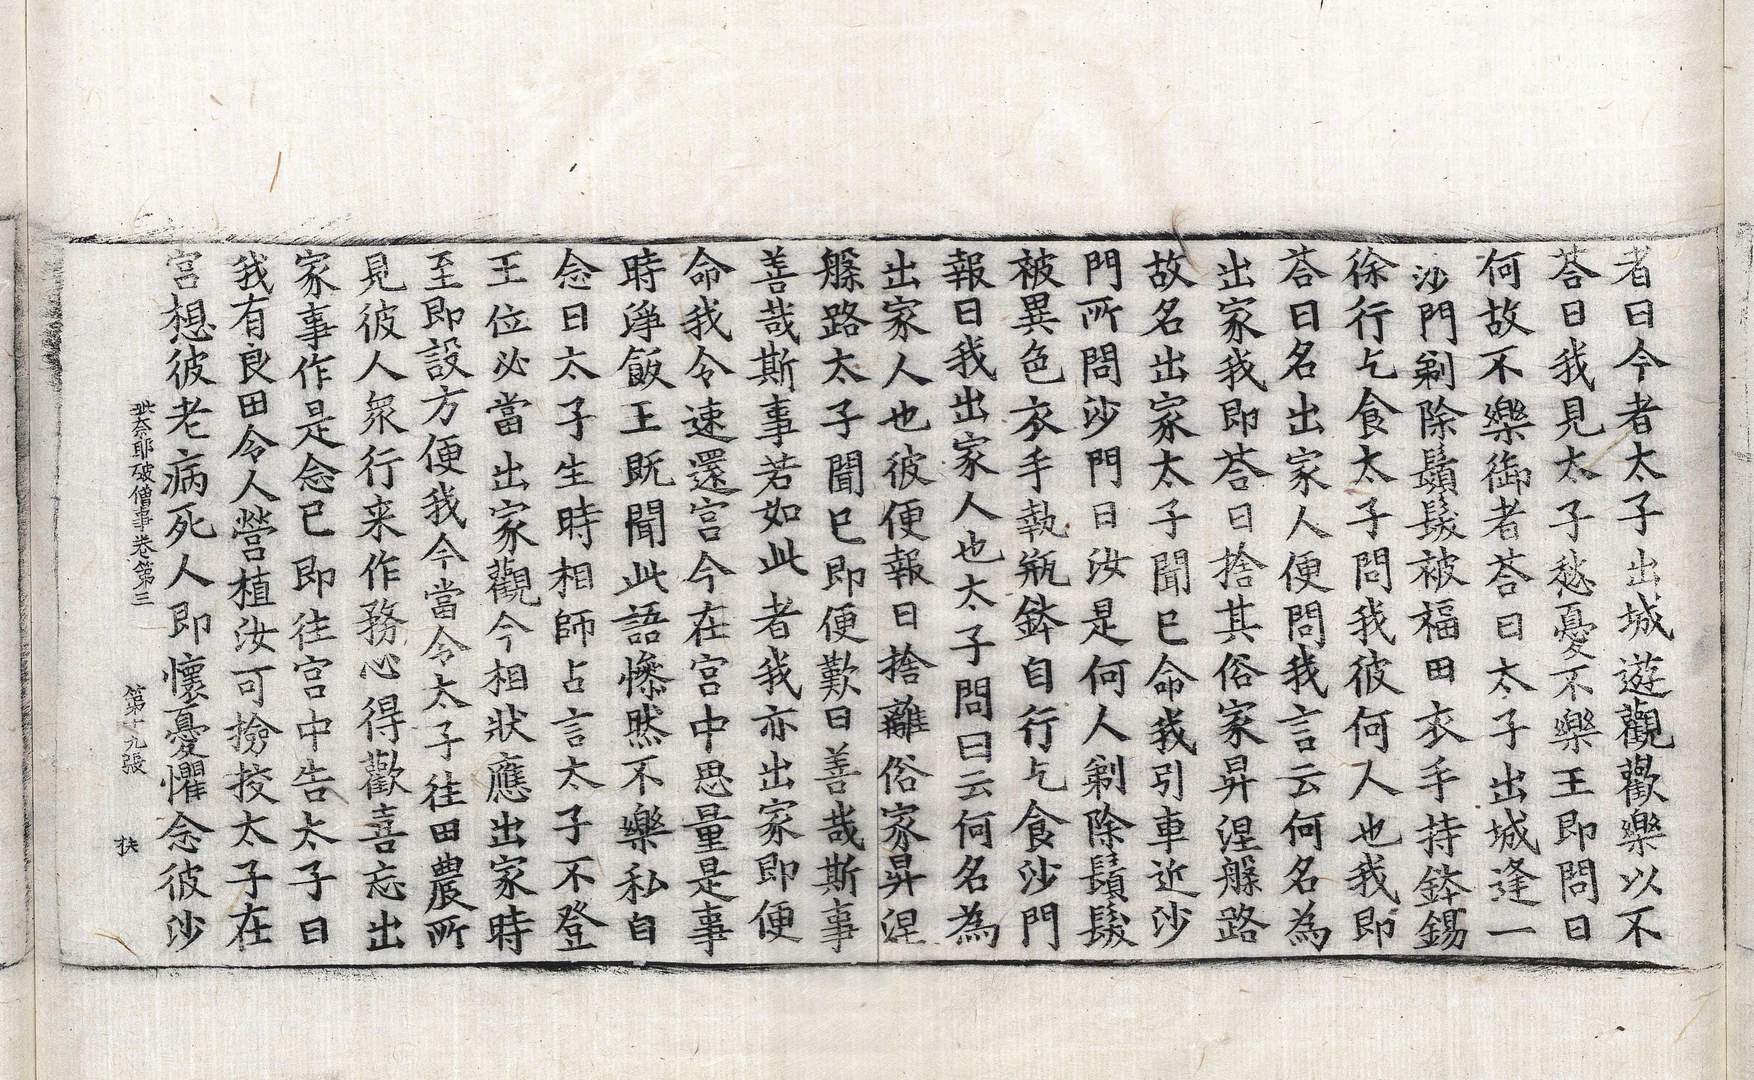 者曰今者太子出城遊觀歡樂以不
荅曰我見太子愁憂不樂王即問曰
何故不樂御者荅曰太子出城逢一
沙門剃除鬚髮被福田衣手持鉢錫
徐行乞食太子問我彼何人也我即
荅曰名出家人便問我言云何名為
出家我即荅曰捨其俗家昇涅槃路
故名出家太子聞已命我引車近沙
門所問沙門曰汝是何人剃除鬚髮
被異色衣手執瓶鉢自行乞食沙門
報曰我出家人也太子問曰云何名為
出家人也彼便報曰捨離俗家昇涅
槃路太子聞已即便歎曰善哉斯事
善哉斯事若如此者我亦出家即便
命我令速還宮今在宮中思量是事
時淨飯王既聞此語慘然不樂私自
念曰太子生時相師占言太子不登
王位必當出家觀今相狀應出家時
至即設方便我今當令太子往田農所
見彼人眾行来作務心得歡喜忘出
家事作是念已即往宮中告太子曰
我有良田令人營植汝可撿挍太子在
宮想彼老病死人即懷憂懼念彼沙
毗奈耶破僧事卷第三 第十九張 扶